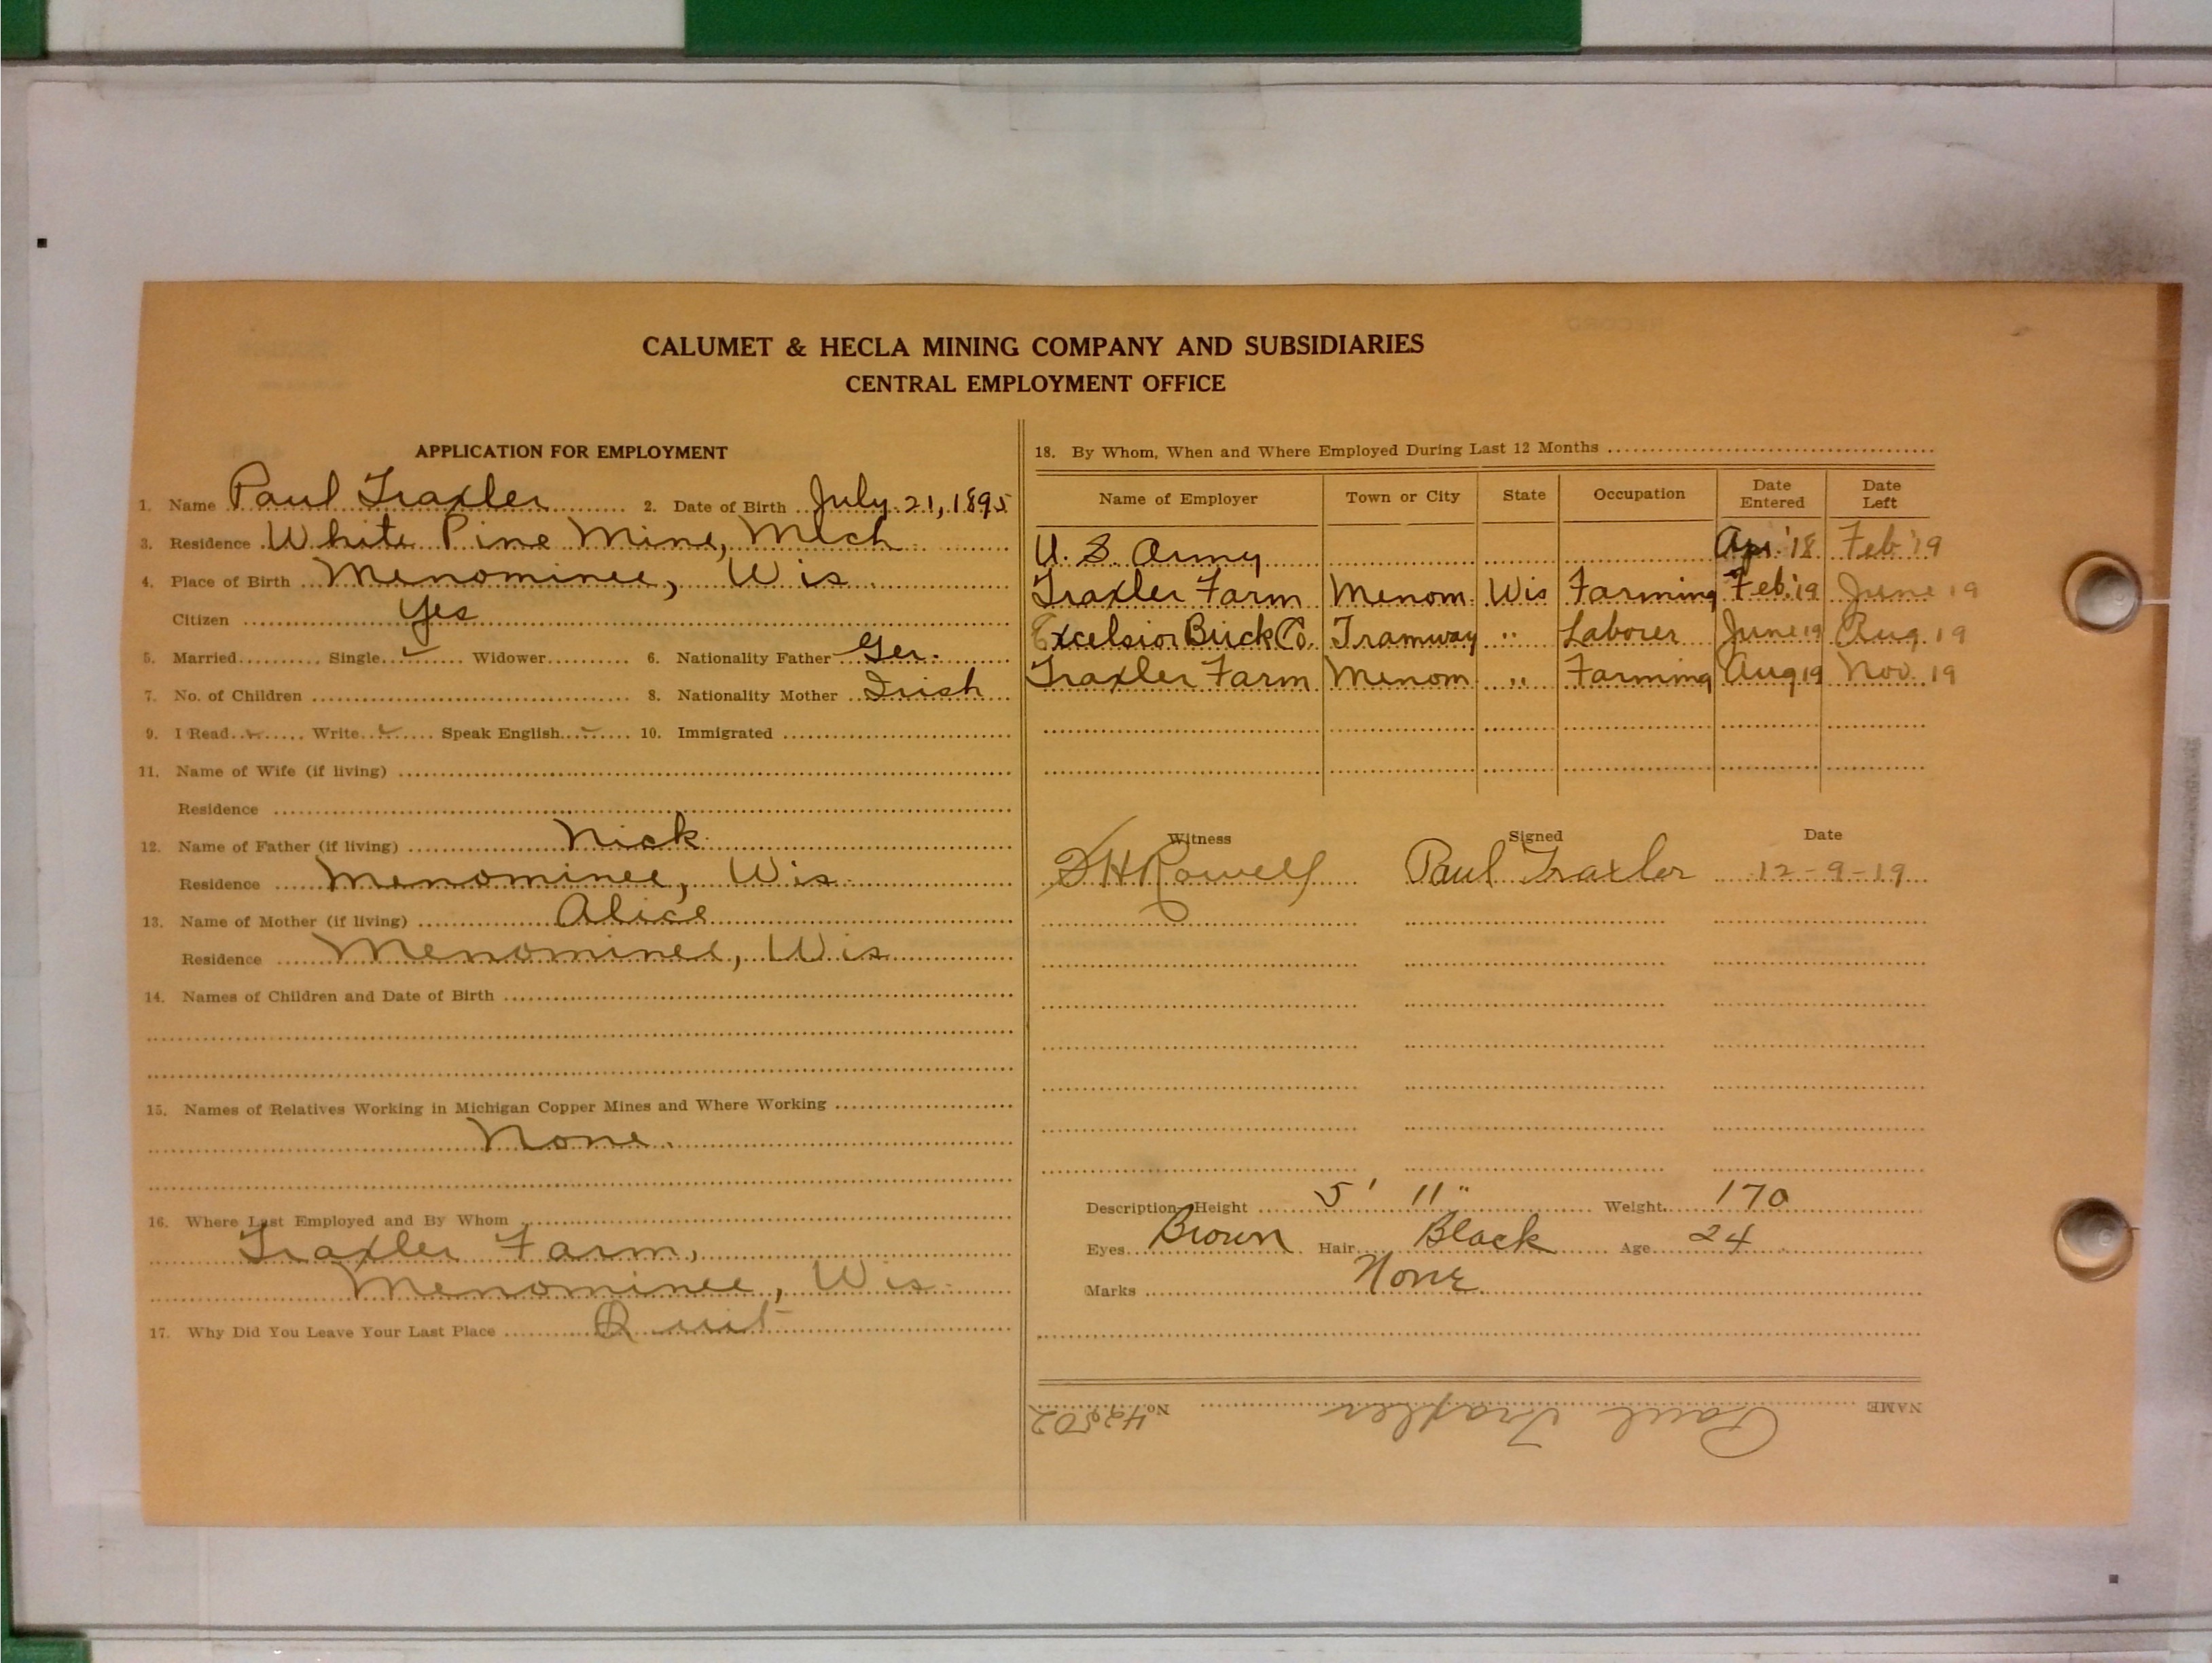 CALUMET & HECLA MINING COMPANY AND SUBSIDIARIES
CENTRAL EMPLOYMENT OFFICE
APPLICATION FOR EMPLOYMENT
1. Name Paul Traxler 2. Date of Birth July 21, 1895
3. Residence White Pine Mine, Mich
4. Place of Birth Menominee, Wis
Citizen Yes
5. Married Single ✓ Widower 6. Nationality Father Ger.
7. No. of Children 8. Nationality Mother Irish
9. I Read ✓ Write ✓ Speak English ✓ 10. Immigrated
11. Name of Wife (if living)
Residence
12. Name of Father (if living) Nick
Residence Menominee, Wis
13. Name of Mother (if living) Alice
Residence Menominee, Wis
14. Names of Children and Date of Birth
15. Names of Relatives Working in Michigan Copper Mines and Where Working
None
16. Where Last Employed and By Whom
Traxler Farm,
Menominee, Wis
17. Why Did You Leave Your Last Place Quit
18. By Whom, When and Where Employed During Last 12 Months
Name of Employer Town or City State Occupation Date Entered Date Left
U. S. Army Apr. '18 Feb '19
Traxler Farm Menom. Wis Farming Feb. '19 June 19
Excelsior Brick Co. Tramway " Laborer June 19 Aug 19
Traxler Farm Menom " Farming Aug 19 Nov. 19
Witness Signed Date
Rowell Paul Traxler 12-9-19
Description, Height 5' 11" Weight 170
Eyes Brown Hair Black Age 24
Marks None
NAME Paul Traxler No. 42502